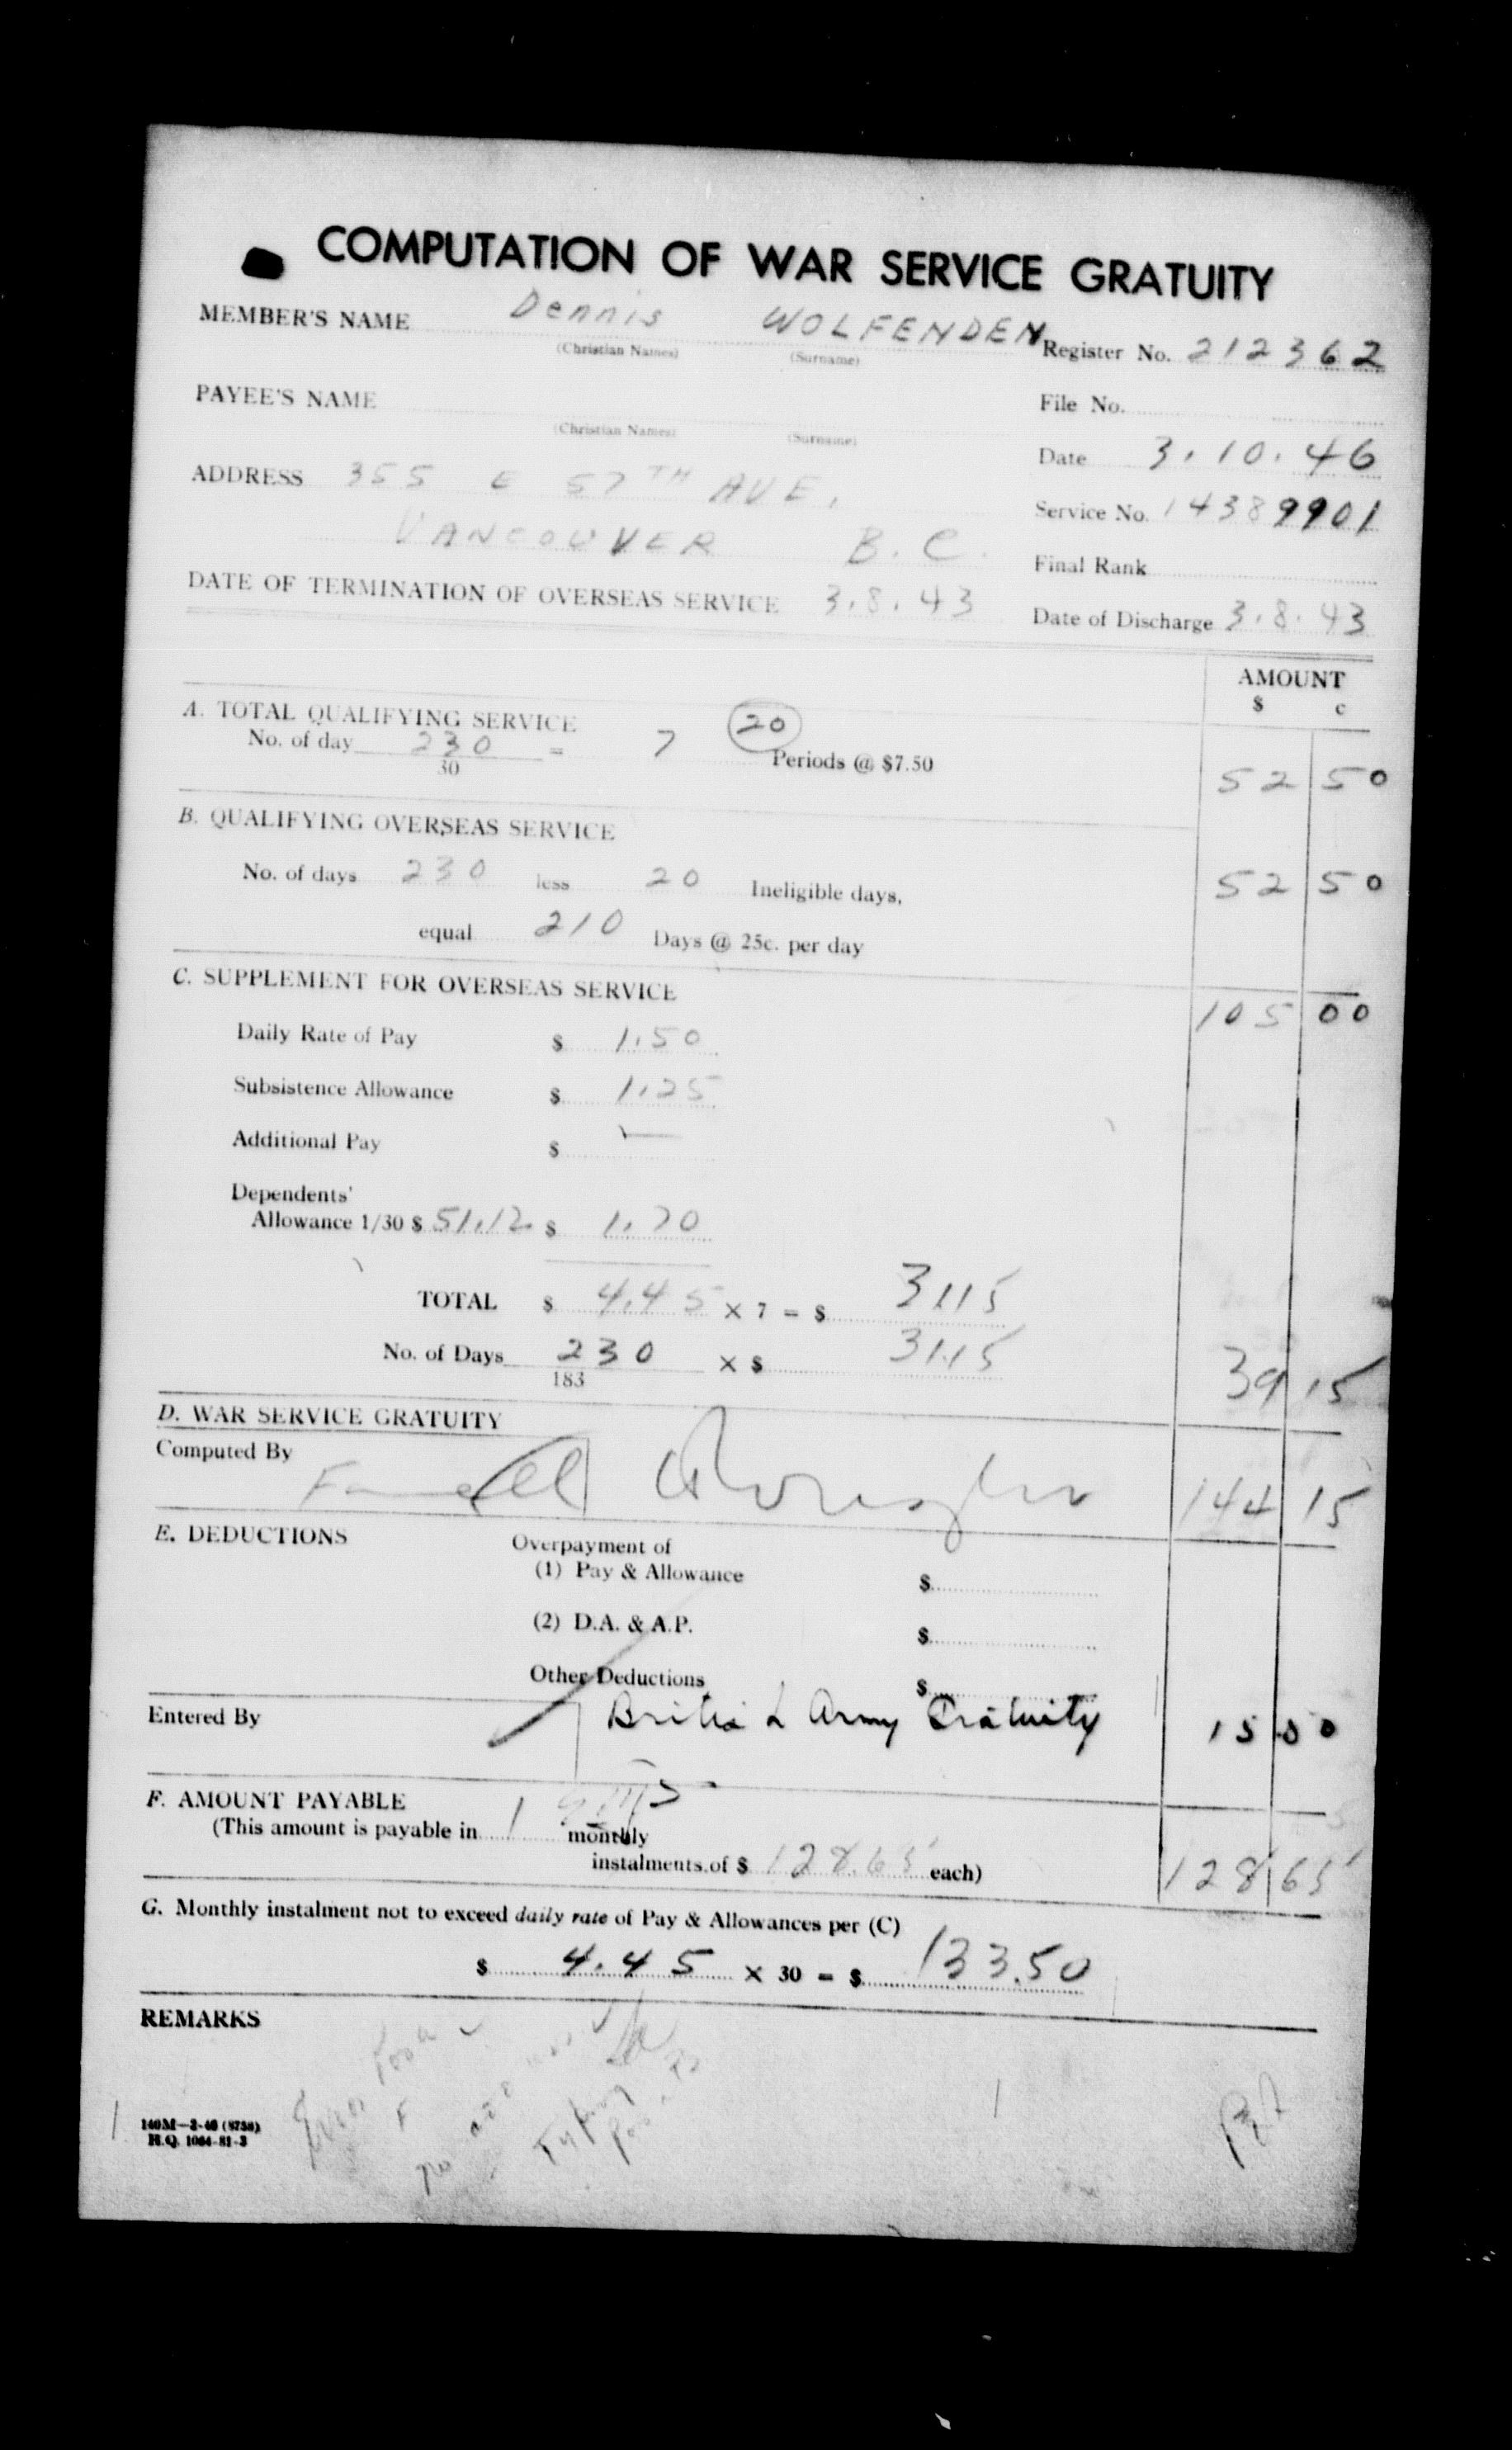 COMPUTATION OF WAR SERVICE GRATUITY
MEMBER'S NAME Dennis WOLFENDEN
(Christian Names) (Surname)
Register No. 212362
PAYEE'S NAME
(Christian Names) (Surname)
File No.
Date 3.10.46
ADDRESS 355 E 57TH AVE,
VANCOUVER B.C.
Service No. 14389901
Final Rank
DATE OF TERMINATION OF OVERSEAS SERVICE 3.8.43
Date of Discharge 3.8.43
AMOUNT
$ c
A. TOTAL QUALIFYING SERVICE
No. of day 230 = 7 20 Periods @ $7.50 52 50
30
B. QUALIFYING OVERSEAS SERVICE
No. of days 230 less 20 Ineligible days, 52 50
equal 210 Days @ 25c. per day
C. SUPPLEMENT FOR OVERSEAS SERVICE
105 00
Daily Rate of Pay $ 1.50
Subsistence Allowance $ 1.25
Additional Pay $ —
Dependents'
Allowance 1/30 $ 51.12 $ 1.70
TOTAL $ 4.45 × 7 = $ 31.15
No. of Days 230 × $ 31.15 39 15
183
D. WAR SERVICE GRATUITY
Computed By 144 15
E. DEDUCTIONS
Overpayment of
(1) Pay & Allowance $
(2) D.A. & A.P. $
Other Deductions $
Entered By British Army Gratuity 15 50
F. AMOUNT PAYABLE
(This amount is payable in 1 monthly
instalments of $ 128.65 each) 128 65
G. Monthly instalment not to exceed daily rate of Pay & Allowances per (C)
$ 4.45 × 30 = $ 133.50
REMARKS
140M—2-46 (8758)
H.Q. 1064-81-3